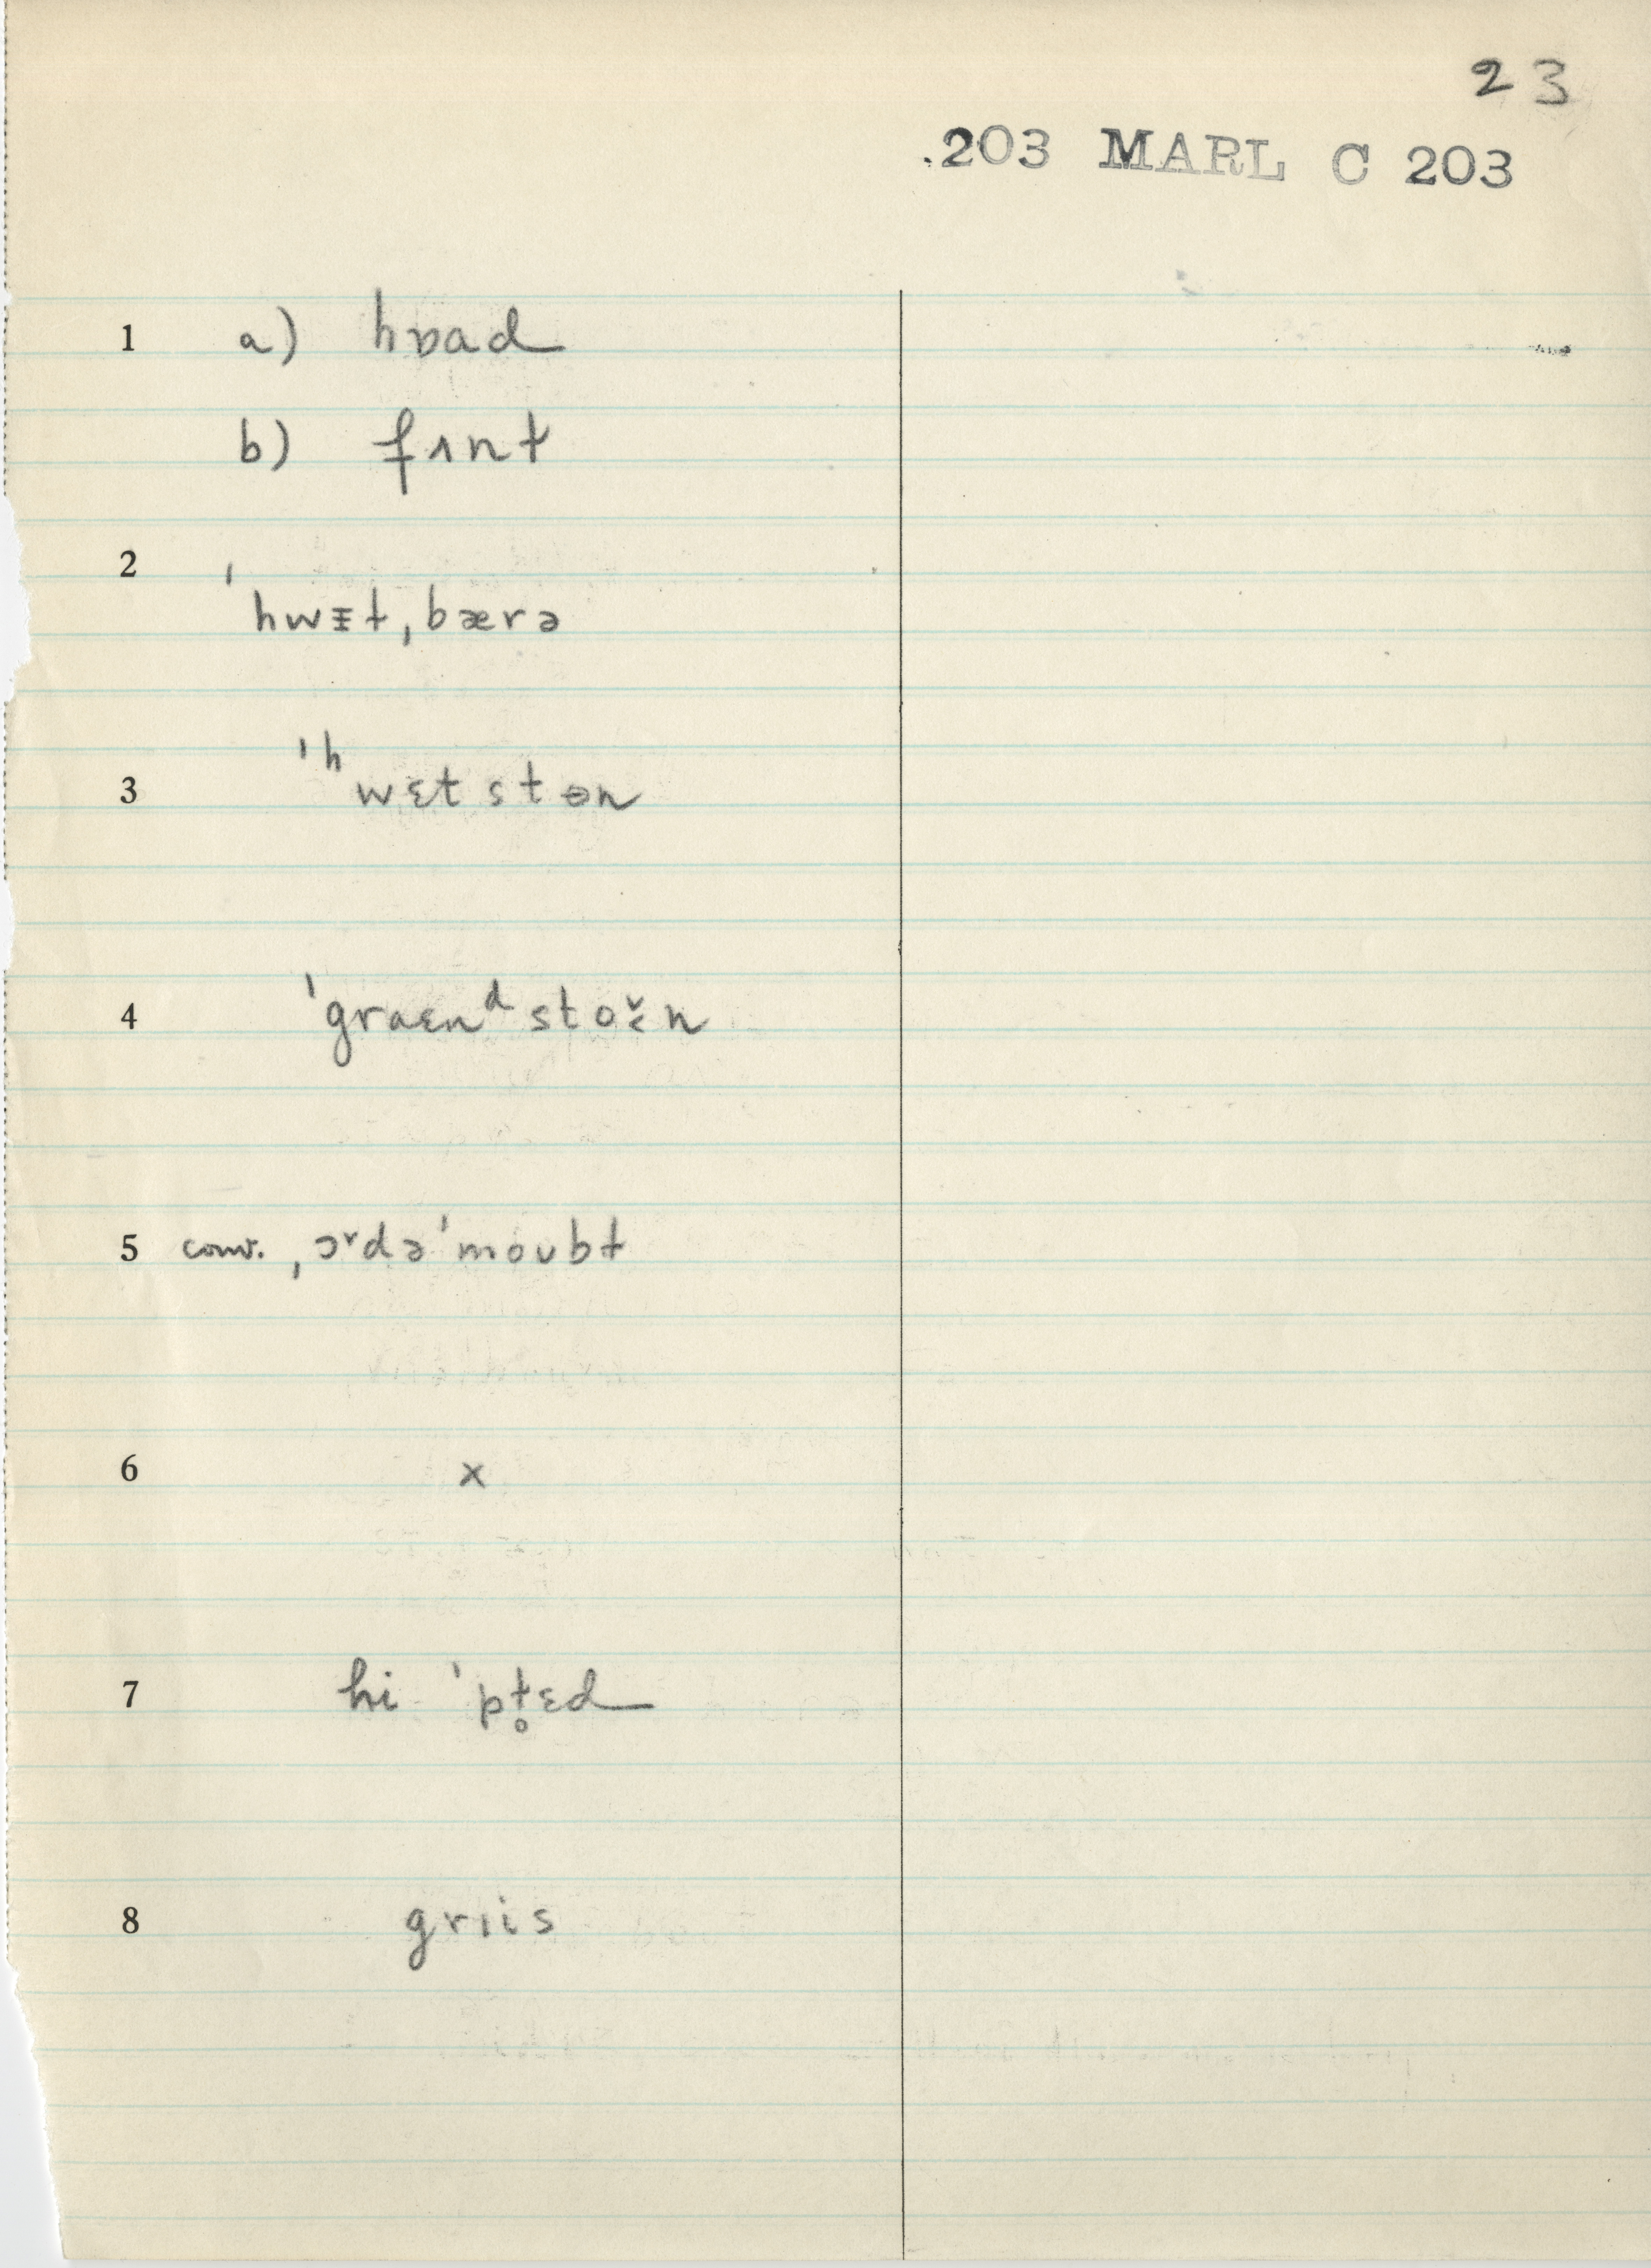 23
.203 MARL C 203
1 a) hɒad
b) fɪnt
2
ˈhwɪt ˌbærə
3 ˈʰwɛtstɵn
4 ˈgraɛnᵈstoɤ̌n
5 conv. ˌɔʳdəˈmoʊbt
6 x
7 hi ˈpt̥ɛd
8 grɪis